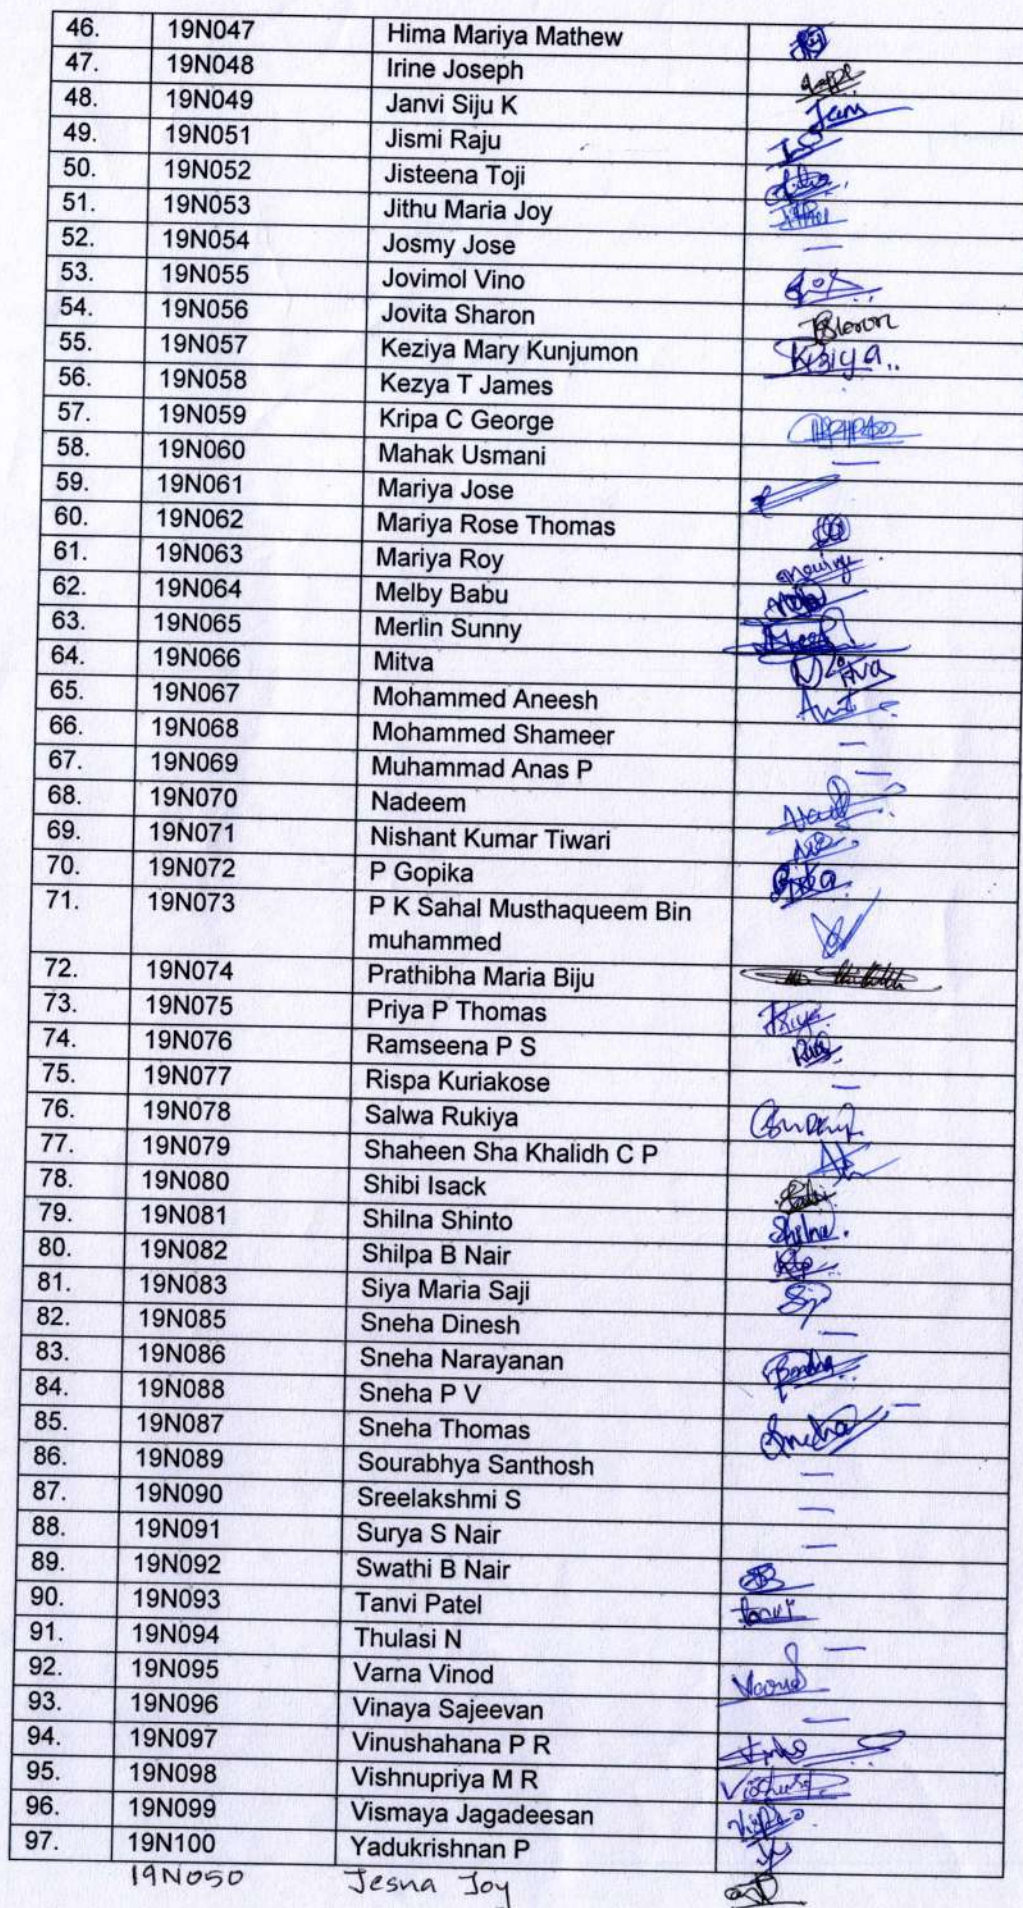 46. 19N047 Hima Mariya Mathew
47. 19N048 Irine Joseph
48. 19N049 Janvi Siju K
49. 19N051 Jismi Raju
50. 19N052 Jisteena Toji
51. 19N053 Jithu Maria Joy
52. 19N054 Josmy Jose —
53. 19N055 Jovimol Vino
54. 19N056 Jovita Sharon
55. 19N057 Keziya Mary Kunjumon
56. 19N058 Kezya T James
57. 19N059 Kripa C George
58. 19N060 Mahak Usmani —
59. 19N061 Mariya Jose
60. 19N062 Mariya Rose Thomas
61. 19N063 Mariya Roy
62. 19N064 Melby Babu
63. 19N065 Merlin Sunny
64. 19N066 Mitva
65. 19N067 Mohammed Aneesh
66. 19N068 Mohammed Shameer —
67. 19N069 Muhammad Anas P —
68. 19N070 Nadeem
69. 19N071 Nishant Kumar Tiwari
70. 19N072 P Gopika
71. 19N073 P K Sahal Musthaqueem Bin
muhammed
72. 19N074 Prathibha Maria Biju
73. 19N075 Priya P Thomas
74. 19N076 Ramseena P S
75. 19N077 Rispa Kuriakose —
76. 19N078 Salwa Rukiya
77. 19N079 Shaheen Sha Khalidh C P
78. 19N080 Shibi Isack
79. 19N081 Shilna Shinto
80. 19N082 Shilpa B Nair
81. 19N083 Siya Maria Saji
82. 19N085 Sneha Dinesh —
83. 19N086 Sneha Narayanan
84. 19N088 Sneha P V —
85. 19N087 Sneha Thomas Sneha
86. 19N089 Sourabhya Santhosh —
87. 19N090 Sreelakshmi S —
88. 19N091 Surya S Nair —
89. 19N092 Swathi B Nair
90. 19N093 Tanvi Patel Tanvi
91. 19N094 Thulasi N —
92. 19N095 Varna Vinod
93. 19N096 Vinaya Sajeevan —
94. 19N097 Vinushahana P R
95. 19N098 Vishnupriya M R
96. 19N099 Vismaya Jagadeesan
97. 19N100 Yadukrishnan P
19N050 Jesna Joy